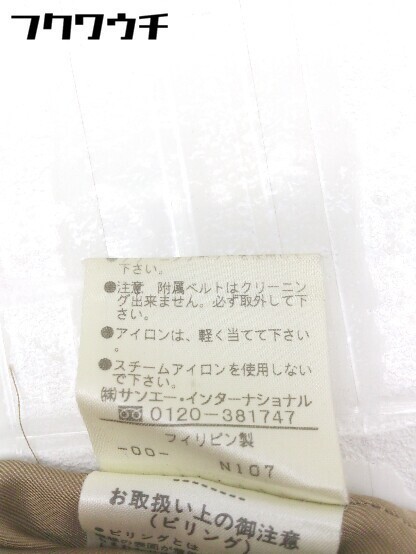 フクワウチ
下さい。
●注意 附属ベルトはクリーニン
グ出来ません。必ず取外して下
さい。
●アイロンは、軽く当てて下さい
。
●スチームアイロンを使用しない
で下さい。
㈱サンエー・インターナショナル
0120-381747
フィリピン製
-00- N107
お取扱い上の御注意
(ピリング)
●ピリングとは